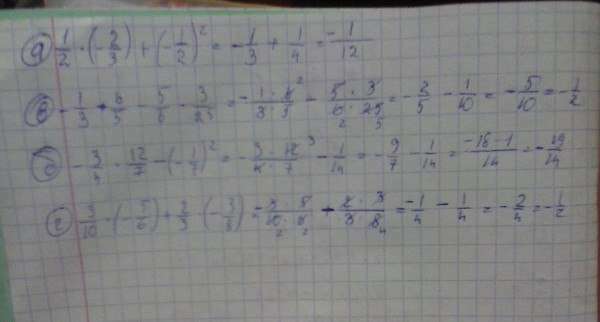 а) 1/2 · (-2/3) + (-1/2)² = -1/3 + 1/4 = -1/12
в) -1/3 · 6/5 - 5/6 · 3/25 = -1·6²/3·5 - 5·3/6₂·25₅ = -2/5 - 1/10 = -5/10 = -1/2
б) -3/4 · 12/7 - (-1/7)² = -3·12³/4·7 - 1/14 = -9/7 - 1/14 = -18-1/14 = -19/14
г) 3/10 · (-5/6) + 2/3 · (-3/8) = -3·5/10₂·6₂ - 2·3/3·8₄ = -1/4 - 1/4 = -2/4 = -1/2